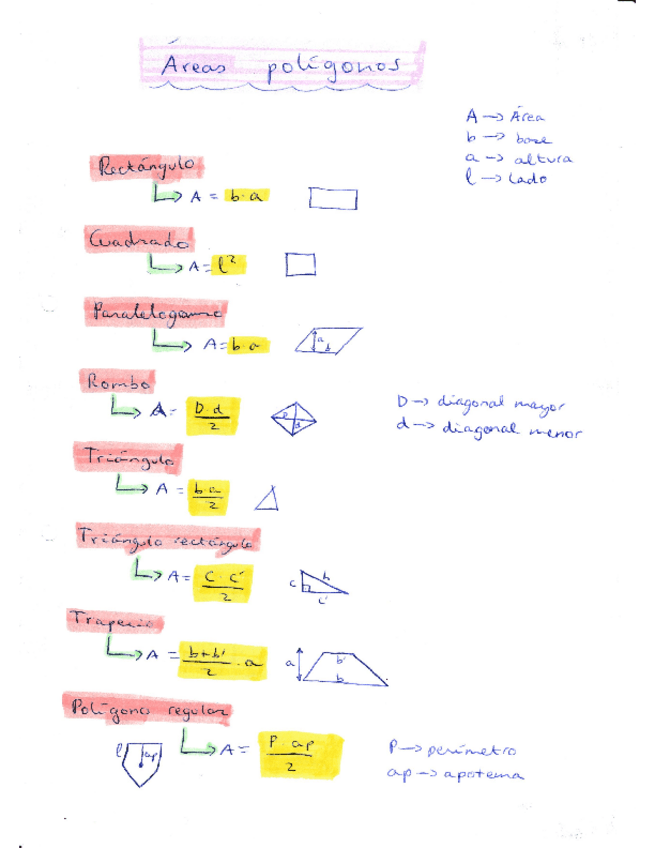 Áreas polígonos
A → Área
b → base
a → altura
l → lado
Rectángulo
A = b·a
Cuadrado
A = l²
Paralelogramo
A = b·a
a
b
Rombo
A = D·d / 2
D
d
D → diagonal mayor
d → diagonal menor
Triángulo
A = b·a / 2
Triángulo rectángulo
A = c·c' / 2
c
h
c'
Trapecio
A = b+b' / 2 · a
a
b'
b
Polígono regular
A = P·ap / 2
l
ap
P → perímetro
ap → apotema